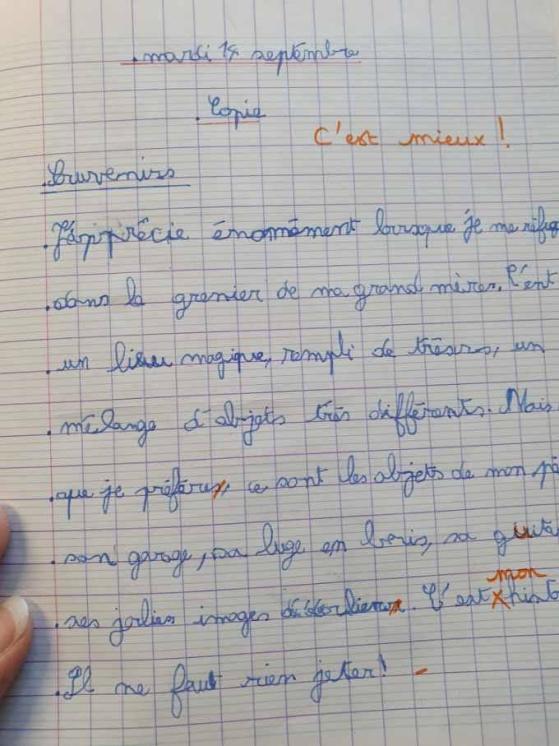 mardi 18 septembre
Copie
C'est mieux !
Souvenirs
J'apprécie énormément lorsque je me réfug
dans le grenier de ma grand mère. C'est
un lieu magique, rempli de trésors, un
mélange d'objets très différents. Mais
que je préfère, ce sont les objets de mon pè
son garage, sa luge en bois, sa guita
ses jolies images d'écoliers. C'est mon histo
Il ne faut rien jeter !